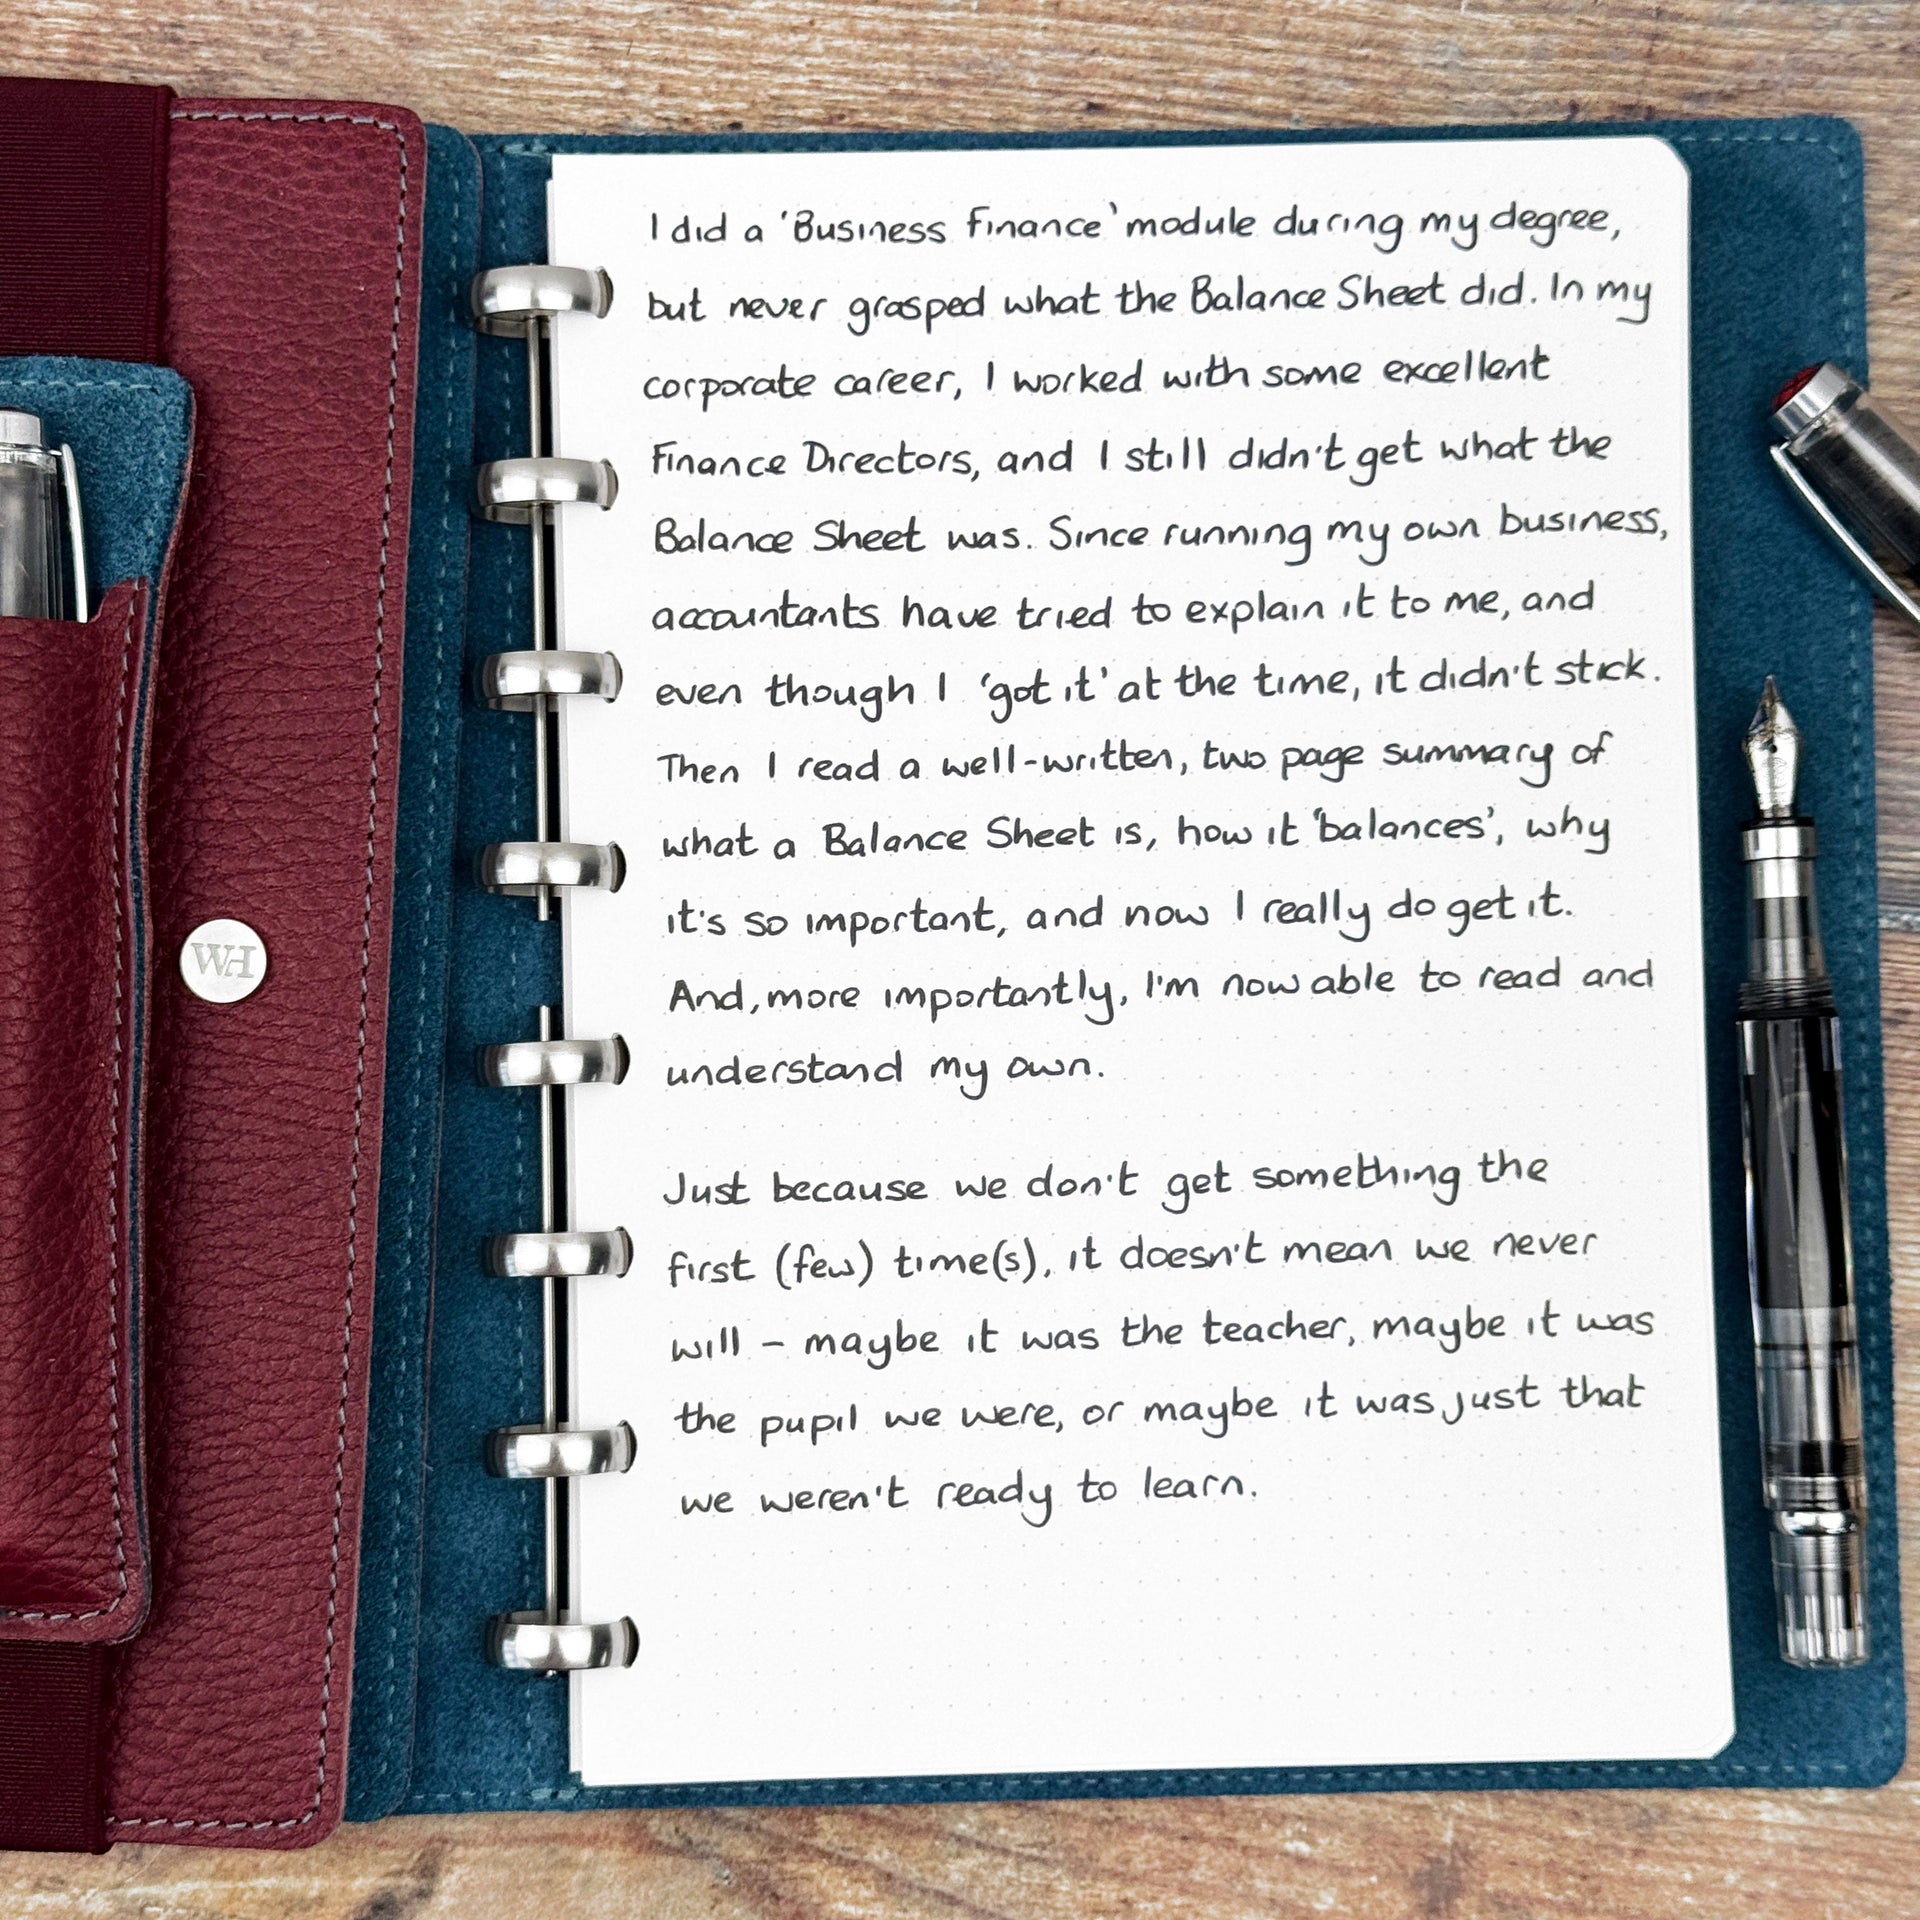 WH
I did a 'Business Finance' module during my degree,
but never grasped what the Balance Sheet did. In my
corporate career, I worked with some excellent
Finance Directors, and I still didn't get what the
Balance Sheet was. Since running my own business,
accountants have tried to explain it to me, and
even though I 'got it' at the time, it didn't stick.
Then I read a well-written, two page summary of
what a Balance Sheet is, how it 'balances', why
it's so important, and now I really do get it.
And, more importantly, I'm now able to read and
understand my own.
Just because we don't get something the
first (few) time(s), it doesn't mean we never
will - maybe it was the teacher, maybe it was
the pupil we were, or maybe it was just that
we weren't ready to learn.